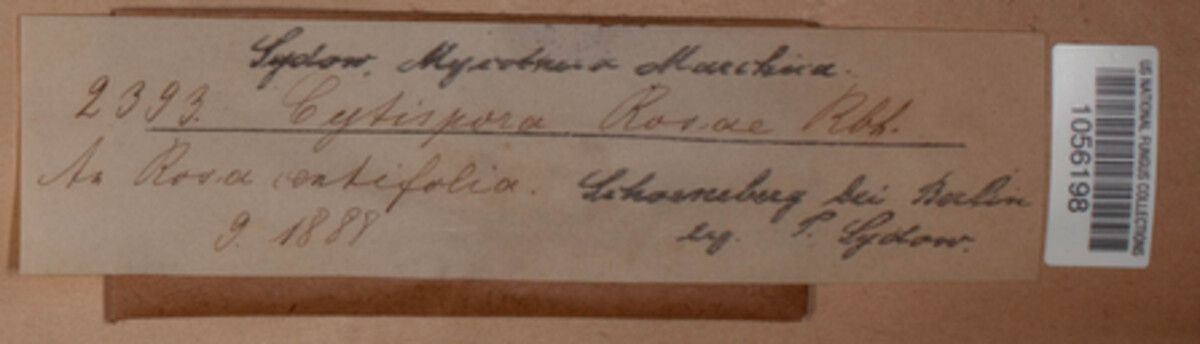 Sydow, Mycotheca Marchica.
2393. Cytispora Rosae Rbh.
An Rosa centifolia. Schoeneberg bei Berlin
9. 1888 leg. P. Sydow.
US NATIONAL FUNGUS COLLECTIONS
1056198